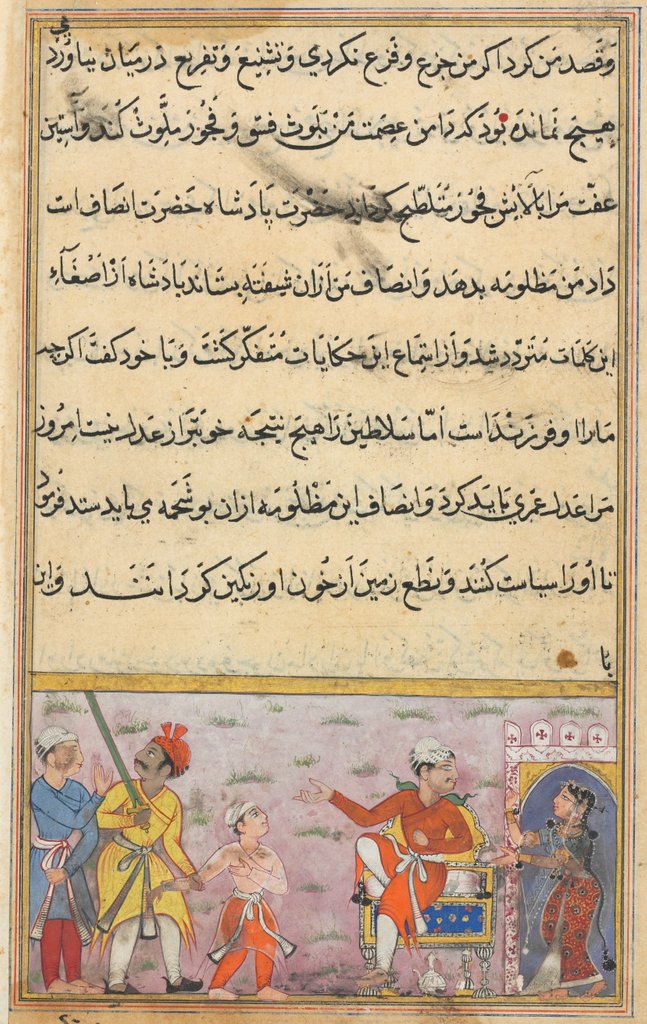 وَقصد مَن کرد اکر من جزع وفزع نکردي وَتشنیع وَتفریع درمیان نیاوردی
هیچ نمانده بُود که دامن عِصمت مَن بلوث فسق وَفجُور ملَوّث کند وآستین
عفت مَرا بآلایش فجُور مُتلطّخ کرداند حَضْرَت پادشاه حَضرت انصاف است
داد من مَظلومه بدهد وَانصاف مَن اَزان شیفته بستاند پادشاه اَز اصْغَآءِ
این کلمات مُتردّد شد وَ از استماع این حکایات مُتفکّر کشت وَ با خود کفت اکرچه
مارا او فرزنداست اَمّا سَلاطین رَا هیچ نتیجه خوبتر از عدل نیست امرُوز
مرا عدل عمری باید کرد وَانصاف این مَظْلُومه ازان بوشحمه می باید ستد فرمود
تا اُو رَا سیاست کُنند وَنطع زمین اَز خُون او رنکین کردانند وَاین
با